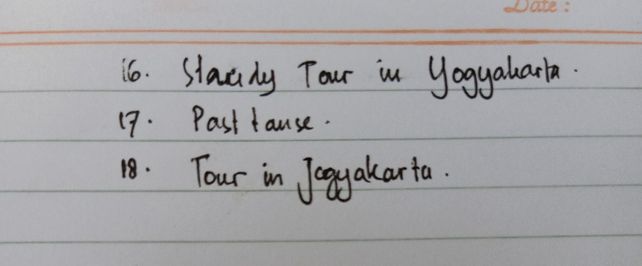 Date :
16. Staudy Tour in Yogyakarta.
17. Past tause.
18. Tour in Jogyakarta.